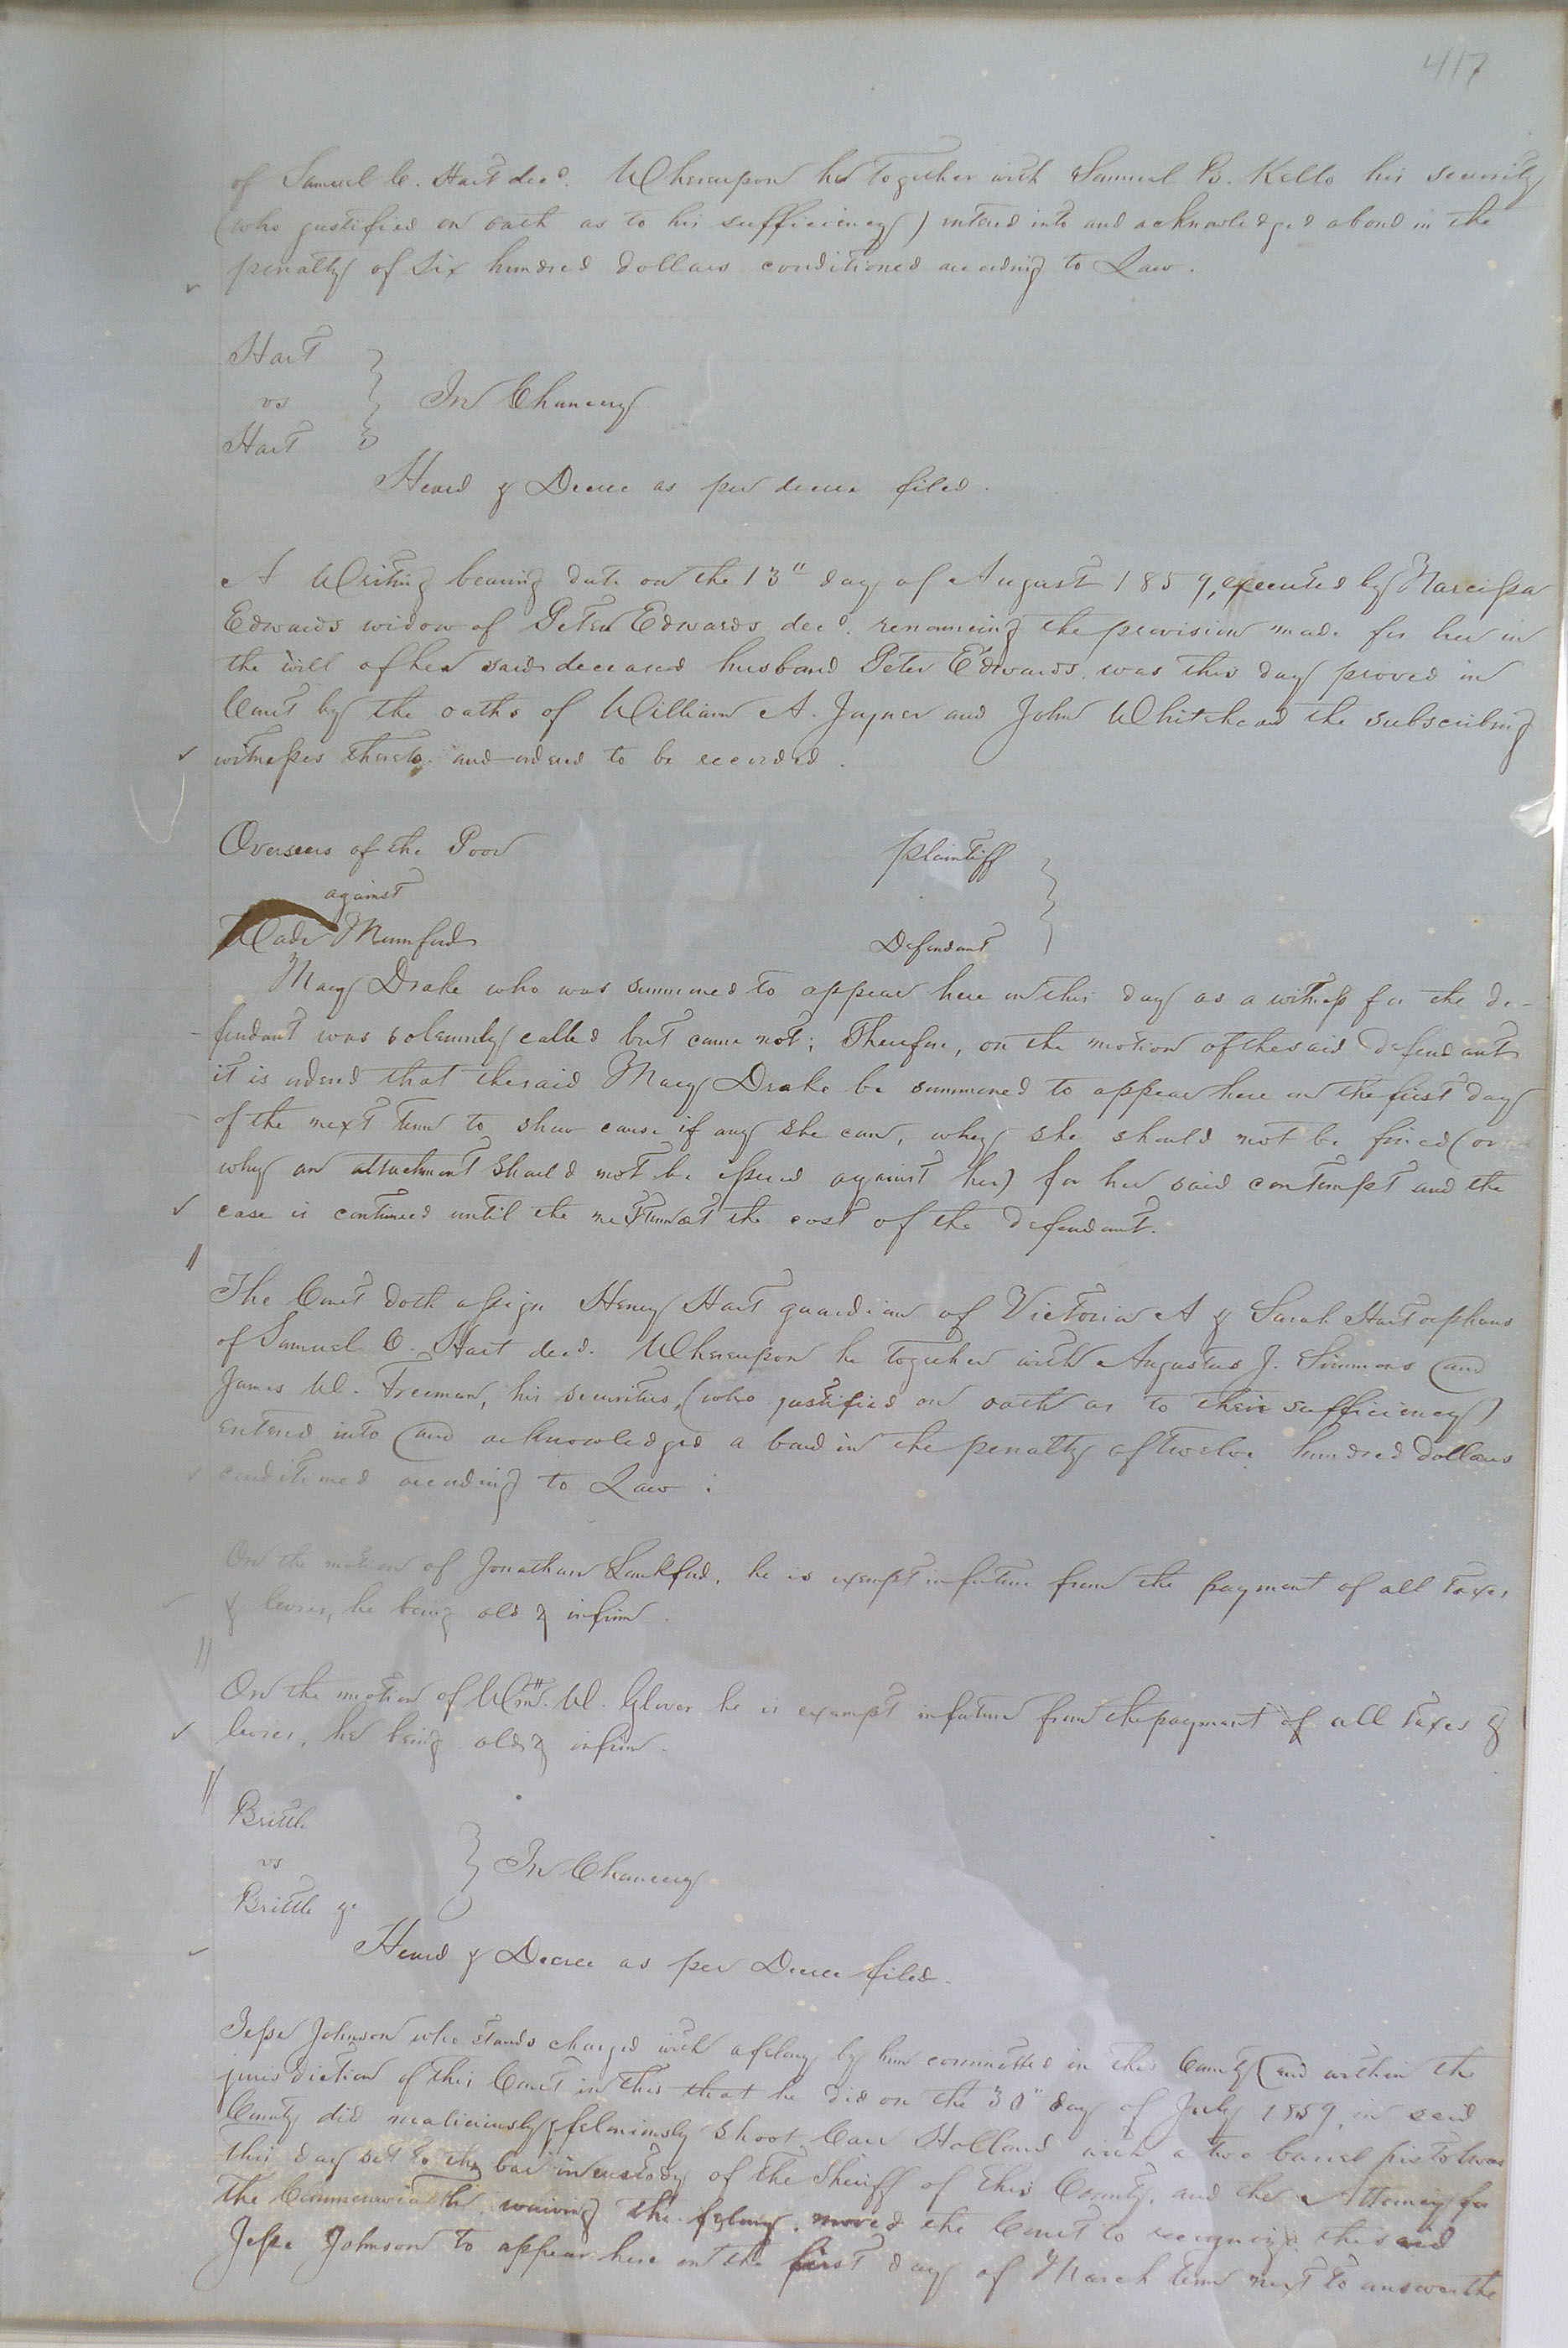 417
of Samuel C. Hart decd. Whereupon he together with Samuel B. Kello his security
(who justified on oath as to his sufficiency) entered into and acknowledged a bond in the
penalty of Six hundred dollars conditioned according to Law.
Hart
vs } In Chancery
Hart
Heard & Decree as per decree filed.
A Writing bearing date on the 13" day of August 1859, executed by Narcissa
Edwards widow of Peter Edwards decd. renouncing the provision made for her in
the will of her said deceased husband Peter Edwards, was this day proved in
Court by the oaths of William A. Joyner and John Whitehead the subscribing
witnesses thereto and ordered to be recorded.
Overseers of the Poor Plaintiff
against
Wade Mumford Defendant
Mary Drake who was summoned to appear here on this day as a witness for the de-
fendant was solemnly called but came not; Therefore, on the motion of the said defendant
it is ordered that the said Mary Drake be summoned to appear here on the first day
of the next term to show cause if any she can, why she should not be fined (or
why an attachment should not be issued against her) for her said contempt and the
case is continued until the next term at the cost of the defendant.
The Court doth assign Henry Hart guardian of Victoria A & Sarah Hart orphans
of Samuel C. Hart decd. Whereupon he together with Augustus J. Simmons and
James W. Freeman, his securities, (who justified on oath as to their sufficiency)
entered into and acknowledged a bond in the penalty of twelve hundred dollars
conditioned according to Law.
On the motion of Jonathan Lankford, he is exempt in future from the payment of all taxes
& levies, he being old & infirm.
On the motion of Wm. W. Glover he is exempt in future from the payment of all taxes &
levies, he being old & infirm.
Brittle
vs } In Chancery
Brittle &c
Heard & Decree as per Decree filed.
Jesse Johnson who stands charged with a felony by him committed in this County and within the
jurisdiction of this Court in this that he did on the 30" day of July 1859, in said
County did maliciously & feloniously shoot Carr Holland with a two barrel pistol was
this day set to the bar in custody of the Sheriff of this County, and the Attorney for
the Commonwealth, waiving the felony, moved the Court to recognize the said
Jesse Johnson to appear here on the first day of March term next to answer the